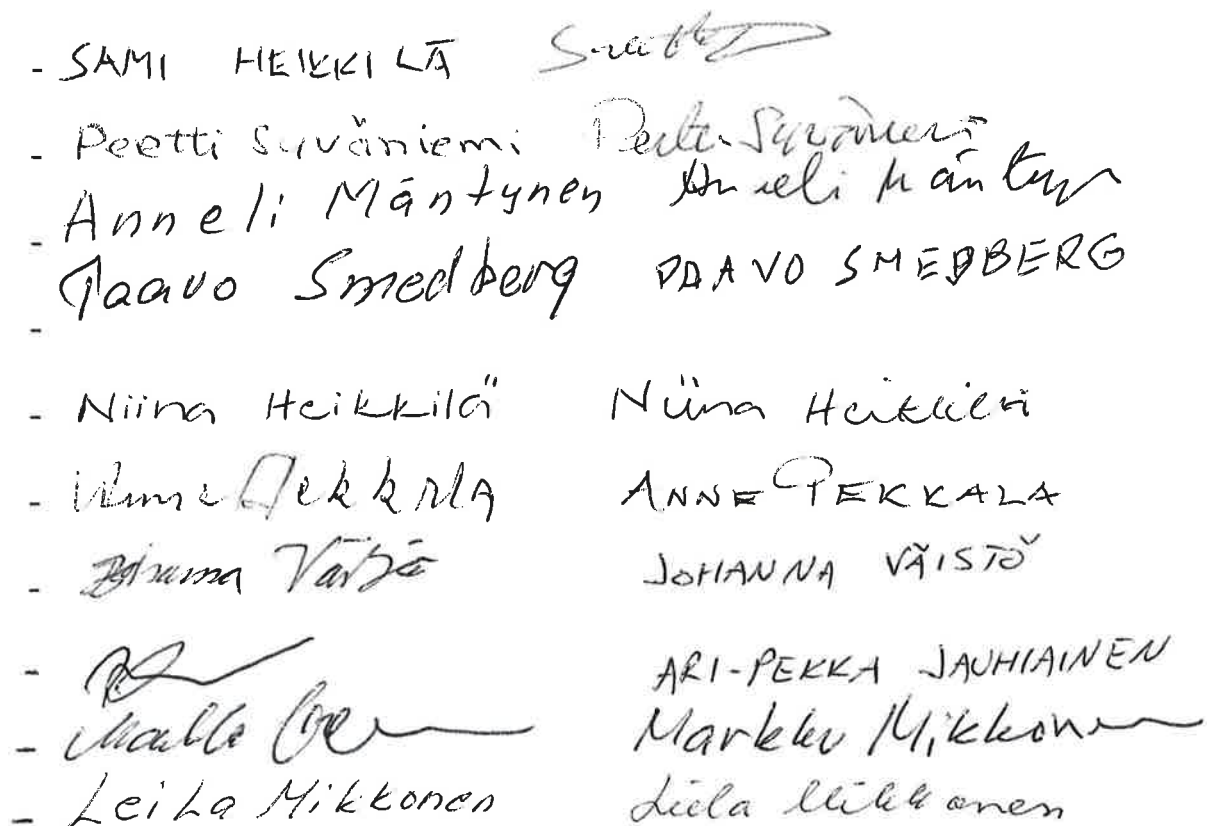 - SAMI HEIKKILÄ
- Peetti Syväniemi Syväniemi
- Anneli Mäntynen Anneli Mäntyn
- Paavo Smedberg PAAVO SMEDBERG
- Niina Heikkilä Niina Heikkilä
- Anne Pekkala ANNE PEKKALA
- Johanna Väistö JOHANNA VÄISTÖ
- ARI-PEKKA JAUHIAINEN
- Markku Mikkonen
- Leila Mikkonen Leila Mikkonen